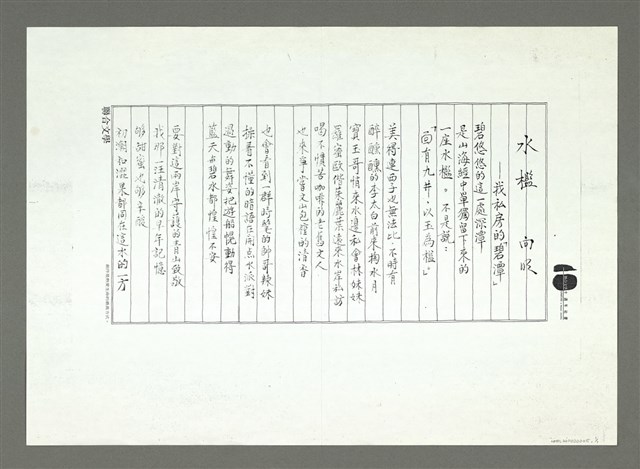 水檻 向明
——我私房的「碧潭」
碧悠悠的這一處深潭
是山海經中單獨留下來的
一座水檻。不是說：
「面有九井，以玉為檻。」
美得連西子也無法比，不時有
醉醺醺的李太白前來掬水月
寶玉哥情來水邊私會林妹妹
羅蜜歐偕茱麗葉遠來水岸私訪
喝不慣苦咖啡的老舊文人
也來享受當文山包種的清香
也會看到一群時髦的帥哥辣妹
操着不懂的暗語在開点水派對
過動的舞姿把遊船慌動得
藍天与碧水都惶惶不安
要對這兩岸守護的青山致敬
我那一汪清澈的早年記憶
夠甜蜜也夠辛酸
初潮和澀果都同在這水的一方
聯合文學